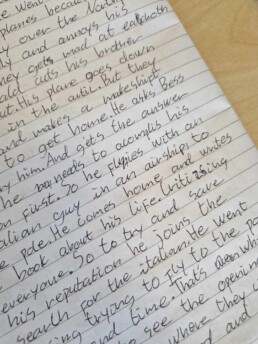 e went
planes because
y over the Nat
ly and annoys his
ey gets mad at eachoth
ld cuts his brother
ut. His plane goes down
in the actic. But they
and makes a makeshift
to get home. He asks Bess
y him. And gets the answer
he needs to accomplis his
on first. So he flyies with an
alian guy in an airship to
e pole. He comes home and writes
book about his life. Critizising
everyone. So to try and save
his reputation he joins the
search for the italian. He went
ing trying to fly to the po
and time. That's when whe
to see the openin
where they
and